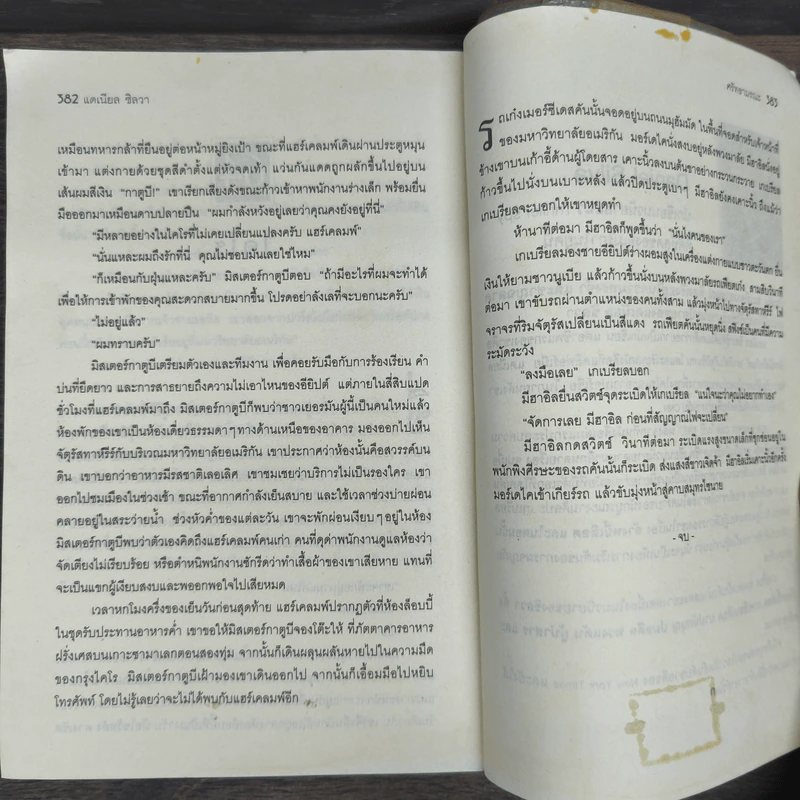 382 แดเนียล ซิลวา
เหมือนทหารกล้าที่ยืนอยู่ต่อหน้าหมู่ยิงเป้า ขณะที่แฮร์เคลมพ์เดินผ่านประตูหมุน
เข้ามา แต่งกายด้วยชุดสีดำตั้งแต่หัวจดเท้า แว่นกันแดดถูกผลักขึ้นไปอยู่บน
เส้นผมสีเงิน “กาตูบี!” เขาเรียกเสียงดังขณะก้าวเข้าหาพนักงานร่างเล็ก พร้อมยื่น
มือออกมาเหมือนดาบปลายปืน “ผมกำลังหวังอยู่เลยว่าคุณคงยังอยู่ที่นี่”
“มีหลายอย่างในไคโรที่ไม่เคยเปลี่ยนแปลงครับ แฮร์เคลมพ์”
“นั่นแหละผมถึงรักที่นี่ คุณไม่ชอบมันเลยใช่ไหม”
“ก็เหมือนกับฝุ่นแหละครับ” มิสเตอร์กาตูบีตอบ “ถ้ามีอะไรที่ผมจะทำได้
เพื่อให้การเข้าพักของคุณสะดวกสบายมากขึ้น โปรดอย่าลังเลที่จะบอกนะครับ”
“ไม่อยู่แล้ว”
“ผมทราบครับ”
มิสเตอร์กาตูบีเตรียมตัวเองและทีมงาน เพื่อคอยรับมือกับการร้องเรียน คำ
บ่นที่ยืดยาว และการสาธยายถึงความไม่เอาไหนของอียิปต์ แต่ภายในสี่สิบแปด
ชั่วโมงที่แฮร์เคลมพ์มาถึง มิสเตอร์กาตูบีก็พบว่าชาวเยอรมันผู้นี้เป็นคนใหม่แล้ว
ห้องพักของเขาเป็นห้องเดี่ยวธรรมดาๆทางด้านเหนือของอาคาร มองออกไปเห็น
จัตุรัสทาห์รีร์กับบริเวณมหาวิทยาลัยอเมริกัน เขาประกาศว่าห้องนั้นคือสวรรค์บน
ดิน เขาบอกว่าอาหารมีรสชาติเลอเลิศ เขาชมเชยว่าบริการไม่เป็นรองใคร เขา
ออกไปชมเมืองในช่วงเช้า ขณะที่อากาศกำลังเย็นสบาย และใช้เวลาช่วงบ่ายผ่อน
คลายอยู่ในสระว่ายน้ำ ช่วงหัวค่ำของแต่ละวัน เขาจะพักผ่อนเงียบๆอยู่ในห้อง
มิสเตอร์กาตูบีพบว่าตัวเองคิดถึงแฮร์เคลมพ์คนเก่า คนที่ดุด่าพนักงานดูแลห้องว่า
จัดเตียงไม่เรียบร้อย หรือตำหนิพนักงานซักรีดว่าทำเสื้อผ้าของเขาเสียหาย แทนที่
จะเป็นแขกผู้เงียบสงบและพออกพอใจไปเสียหมด
เวลาหกโมงครึ่งของเย็นวันก่อนสุดท้าย แฮร์เคลมพ์ปรากฏตัวที่ห้องล็อบบี้
ในชุดรับประทานอาหารค่ำ เขาขอให้มิสเตอร์กาตูบีจองโต๊ะให้ ที่ภัตตาคารอาหาร
ฝรั่งเศสบนเกาะซามาเลกตอนสองทุ่ม จากนั้นก็เดินผลุนผลันหายไปในความมืด
ของกรุงไคโร มิสเตอร์กาตูบีเฝ้ามองเขาเดินออกไป จากนั้นก็เอื้อมมือไปหยิบ
โทรศัพท์ โดยไม่รู้เลยว่าจะไม่ได้พบกับแฮร์เคลมพ์อีก
383
รถเก๋งเมอร์ซีเดสคันนั้นจอดอยู่บนถนนมูฮัมมัด ในพื้นที่จอดสำหรับเจ้าหน้าที่
ของมหาวิทยาลัยอเมริกัน มอร์เดไคนั่งสงบอยู่หลังพวงมาลัย มีฮาอิลนั่งอยู่
ข้างเขาบนเก้าอี้ด้านผู้โดยสาร เคาะนิ้วลงบนต้นขาอย่างกระวนกระวาย เกเบรียล
ก้าวขึ้นไปนั่งบนเบาะหลัง แล้วปิดประตูเบาๆ มีฮาอิลยังคงเคาะนิ้ว ถึงแม้ว่า
เกเบรียลจะบอกให้เขาหยุดทำ
ห้านาทีต่อมา มีฮาอิลก็พูดขึ้นว่า “นั่นไงคนของเรา”
เกเบรียลมองชายอียิปต์ร่างผอมสูงในเครื่องแต่งกายแบบชาวตะวันตก ยื่น
เงินให้ยามชาวนูเบีย แล้วก้าวขึ้นนั่งบนหลังพวงมาลัยรถเฟียตเก๋ง สามสิบวินาที
ต่อมา เขาขับรถผ่านตำแหน่งของคนทั้งสาม แล้วมุ่งหน้าไปทางจัตุรัสทาห์รีร์ ไฟ
จราจรที่ริมจัตุรัสเปลี่ยนเป็นสีแดง รถเฟียตคันนั้นหยุดนิ่ง สฟิงซ์เป็นคนที่มีความ
ระมัดระวัง
“ลงมือเลย” เกเบรียลบอก
มีฮาอิลยื่นสวิตช์จุดระเบิดให้เกเบรียล “แน่ใจนะว่าคุณไม่อยากทำเอง”
“จัดการเลย มีฮาอิล ก่อนที่สัญญาณไฟจะเปลี่ยน”
มีฮาอิลกดสวิตช์ วินาทีต่อมา ระเบิดแรงสูงขนาดเล็กที่ซุกซ่อนอยู่ใน
พนักพิงศีรษะของรถคันนั้นก็ระเบิด ส่งแสงสีขาวเจิดจ้า มีฮาอิลเริ่มเคาะนิ้วอีกครั้ง
มอร์เดไคเข้าเกียร์รถ แล้วขับมุ่งหน้าสู่คาบสมุทรไซนาย
- จบ -